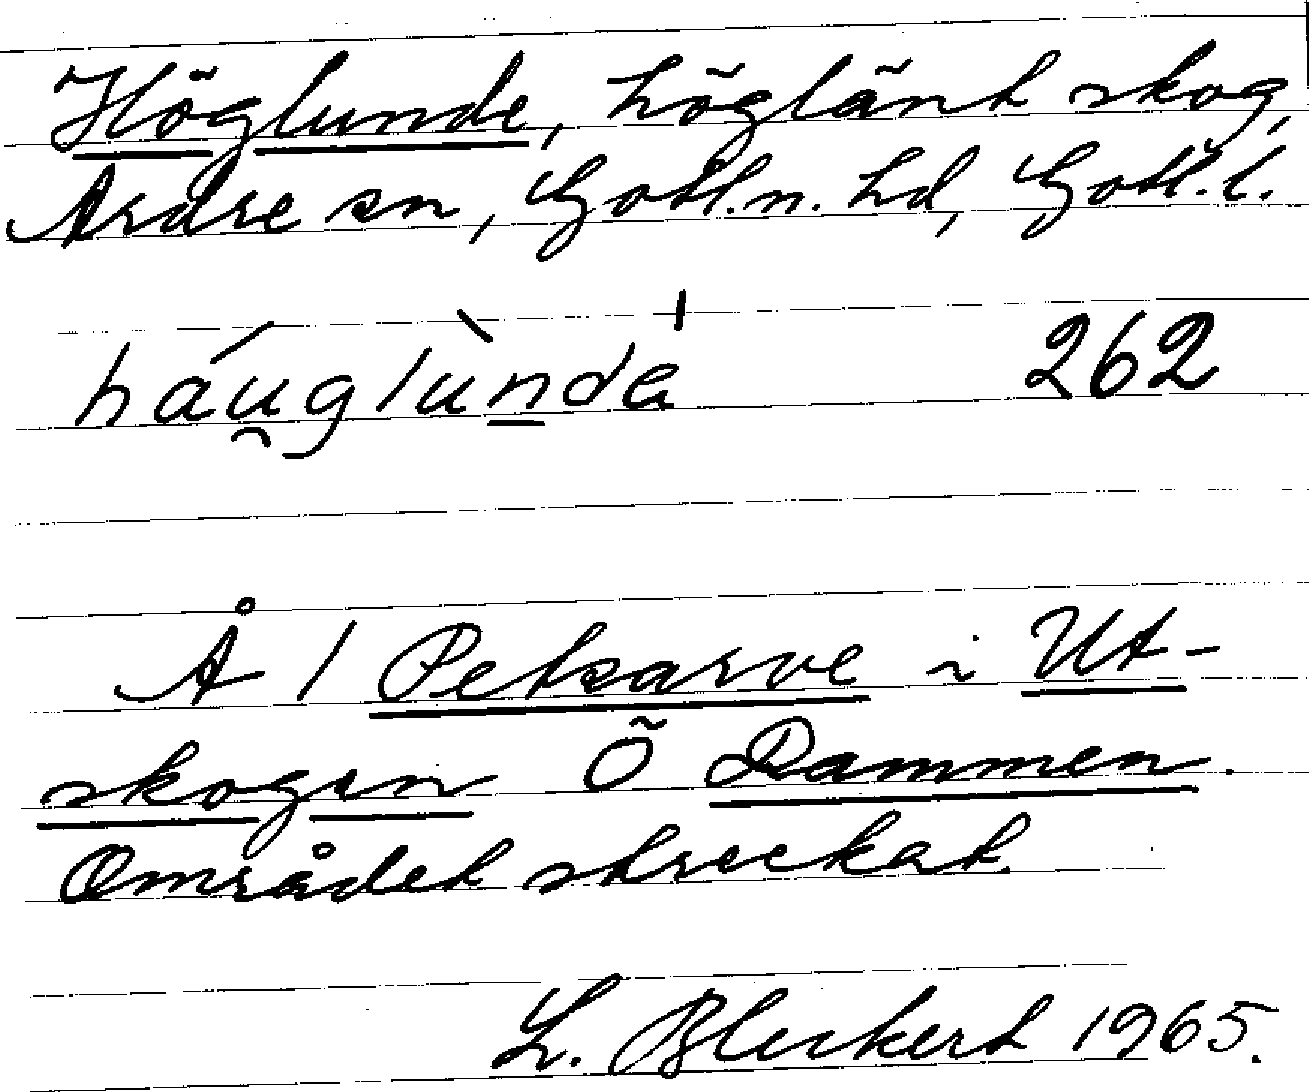 Höglunde, höglänt skog,
Ardre sn, Gotl. n. hd, Gotl. l.
háu̯glùnde̍ 262
Å 1 Petsarve i Ut-
skogen Ö Dammen.
Området streckat.
L. Bleckert 1965.